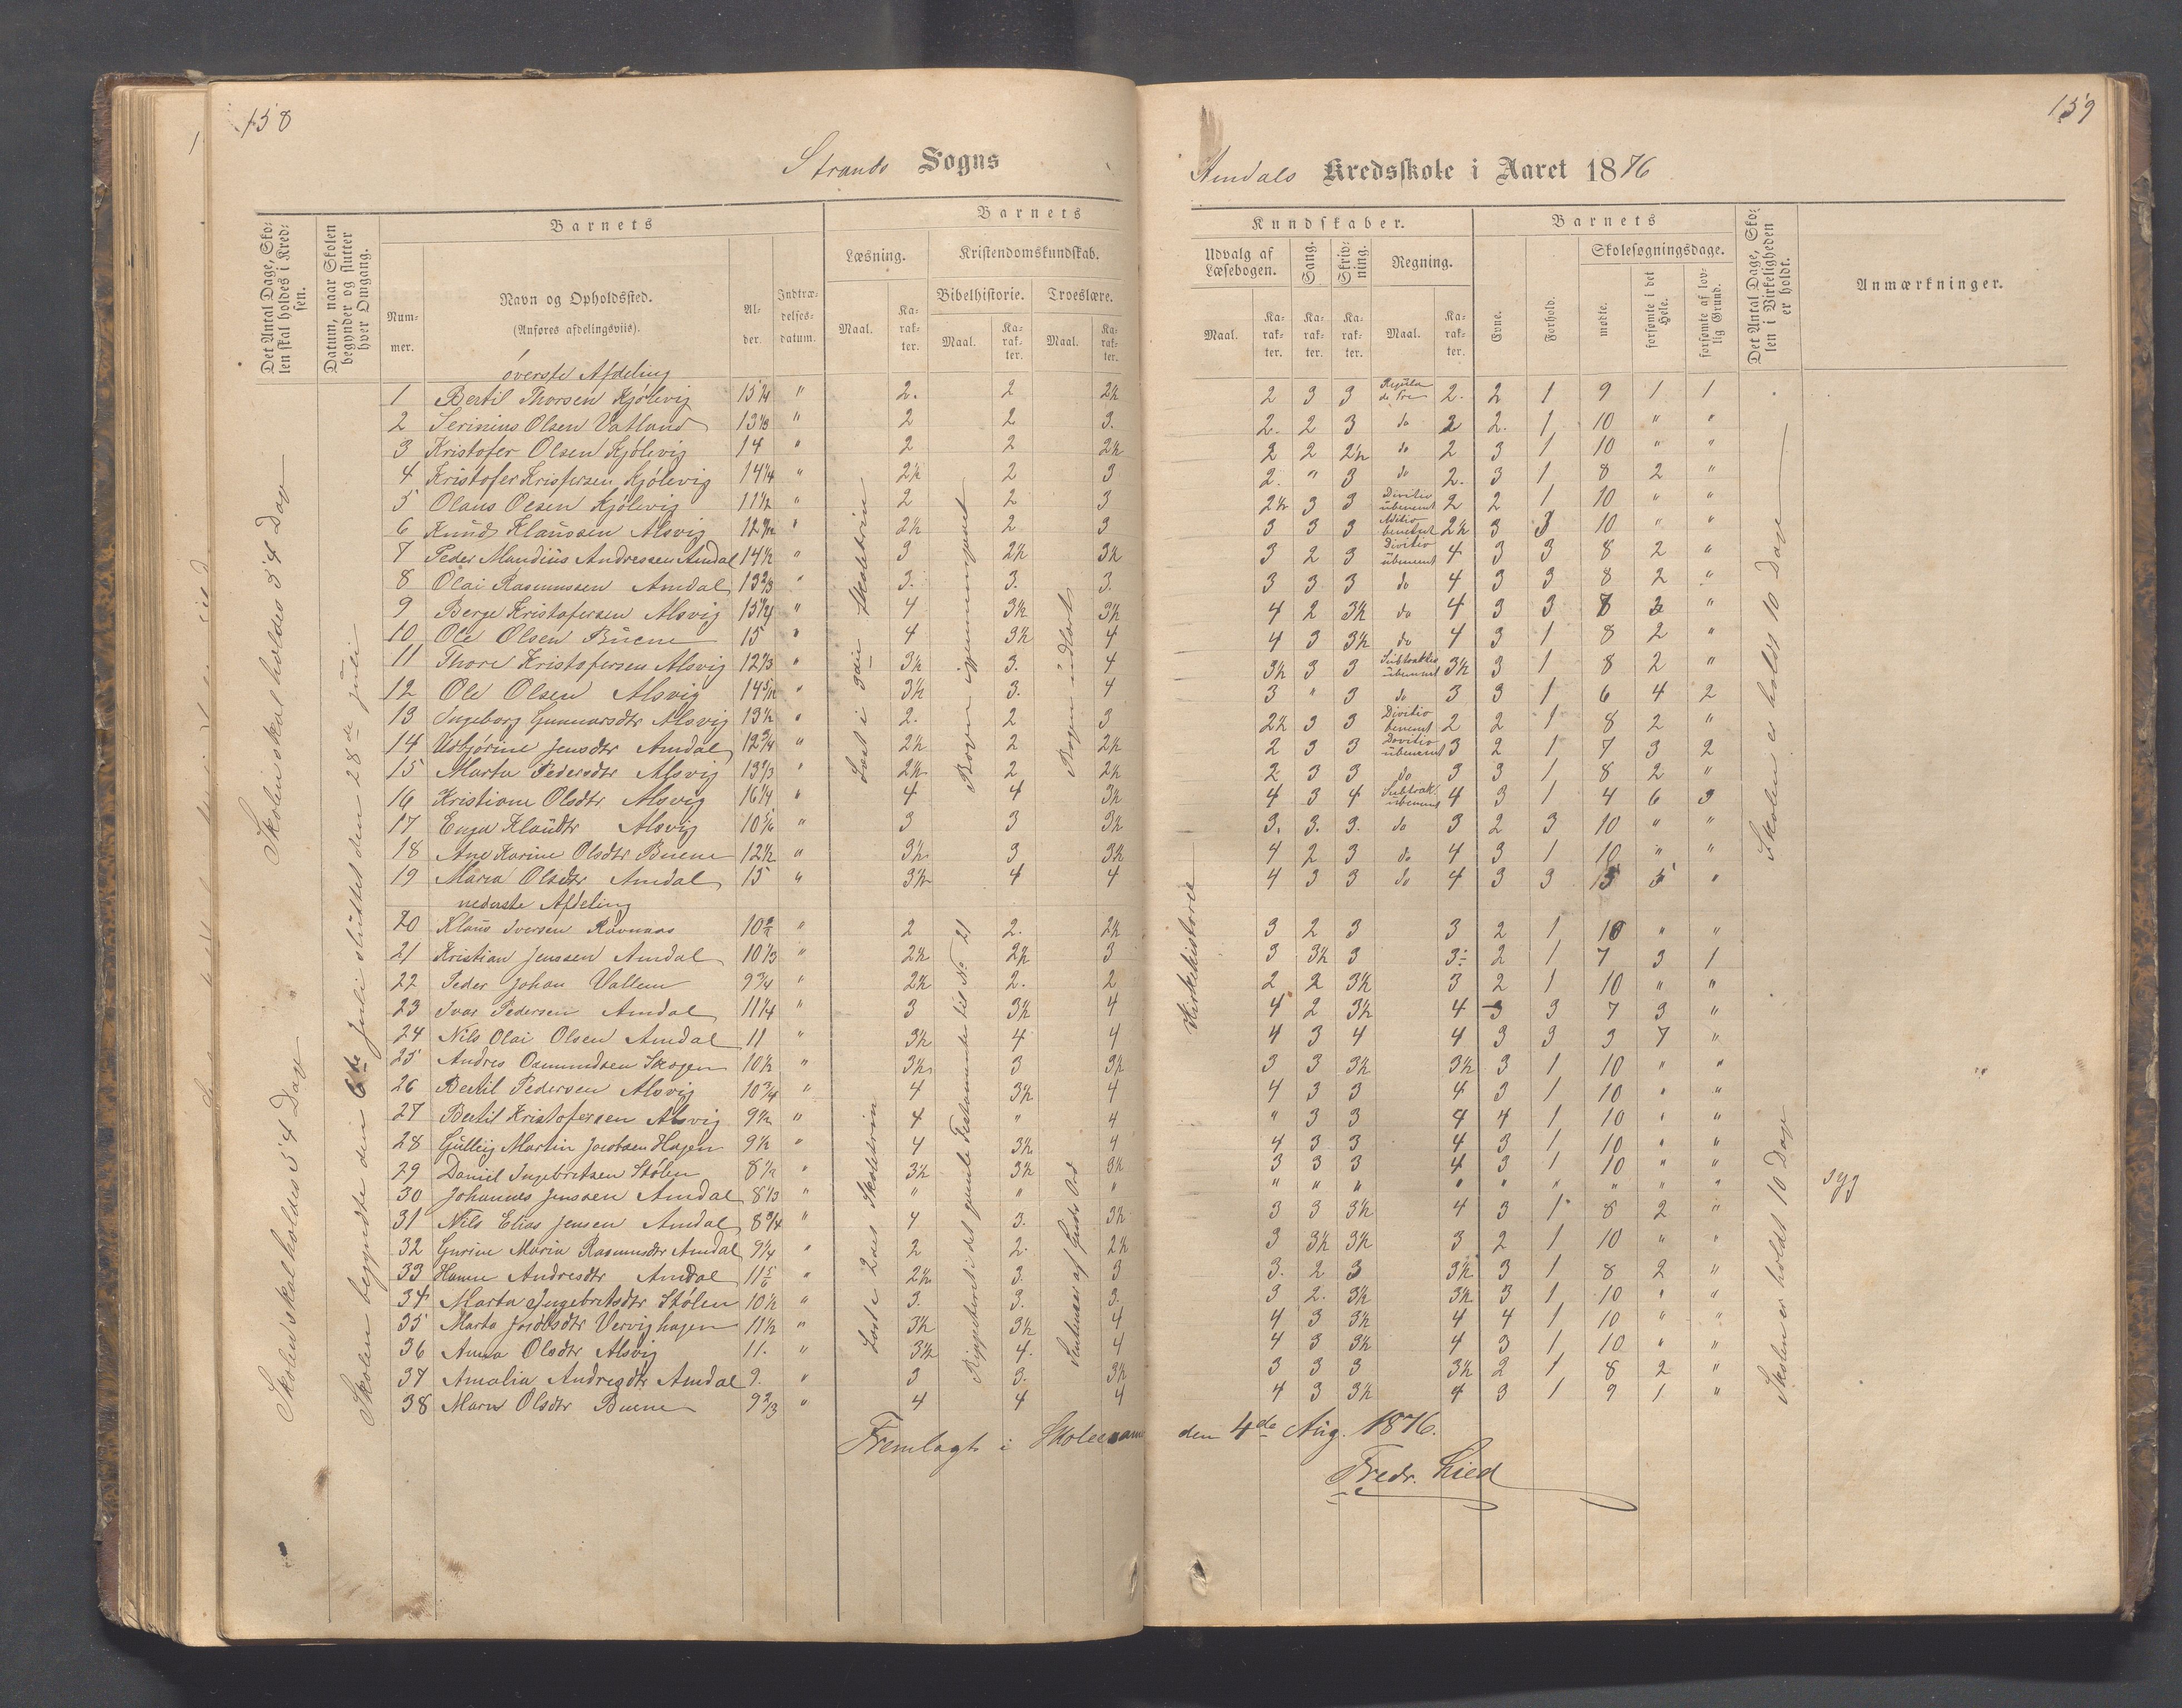 158
Strands Sogns
Det Antal Dage, Sko-
len skal holdes i Kred-
sen.
Datum, naar Skolen
begynder og slutter
hver Omgang.
Barnets
Num-
mer.
Navn og Opholdssted.
(Anføres afdelingsviis).
Al-
der.
Indtræ-
delses-
datum.
Barnets
Læsning.
Kristendomskundskab.
Bibelhistorie. Troeslære.
Maal. Ka-rak-ter. Maal. Ka-rak-ter. Maal. Ka-rak-ter.
øverste Afdeling
1 Bertil Thorsen Kjølevig 15 1/4 " 2. 2 2½
2 Serinius Olsen Vatland 13 1/3 " 2 2 3.
3 Kristofer Olsen Kjølevig 14 " 2 2 2½
4 Kristofer Kristfersen Kjølevig 14 1/4 " 2½ 2 3
5 Olaus Olsen Kjølevig 11 1/2 " 2 2 3
6 Knud Klaussen Alsvig " 2½ 2 3
7 Peder Mandius Andressen Amdal 14 1/2 " 3 2½ 3½
8 Olai Rasmussen Amdal 13 2/3 " 3. 3. 3.
9 Berge Kristofersen Alsvig " 4 3½ 3½
10 Ole Olsen Buene 15 " 4 3½ 4
11 Thore Kristofersen Alsvig 12 1/3 " 3½ 3. 4
12 Ole Olsen Alsvig 14 5/12 " 3½ 3. 4
13 Ingeborg Gunnarsdtr Alsvig 13 1/2 " 2. 2 3
14 Udbjørine Jensdtr Amdal 12 3/4 " 2½ 2 2½
15 Marta Pedersdtr Alsvig 13 1/3 " 2½ 2 2½
16 Kristiane Olsdtr Alsvig 16 1/4 " 4 4 3½
17 Enga Klausdtr Alsvig 10 5/6 " 3 3 3½
18 Ane Karine Olsdtr Buene 12 1/2 " 3½ 3 3½
19 Maria Olsdtr Amdal 15 " 3½ 4 4
nederste Afdeling
20 Klaus Iversen Ravnaas " 2 2. 2½
21 Kristian Jenssen Amdal 10 1/3 " 2½ 2½ 3
22 Peder Johan Vallem 9 3/4 " 2½ 2. 2
23 Ivar Pedersen Amdal 11 1/4 " 3 3½ 4
24 Nils Olai Olsen Amdal 11 " 3½ 4 4
25 Andres Osmundsen Skogen 10 1/2 " 3½ 3 3½
26 Bertil Pedersen Alsvig 10 3/4 " 4 3½ 4
27 Bertil Kristofersen Alsvig 9 1/2 " 4 " 4
28 Gulleig Martin Jacobsen Hagen 9 1/2 " 4 3½ 4
29 Daniel Ingebretsen Stølen 8 1/2 " 3½ 3½ 3½
30 Johannes Jenssen Amdal 8 1/3 " " " "
31 Nils Elias Jensen Amdal 8 3/4 " 4 3. 3½
32 Gurine Maria Rasmusdtr Amdal 9 1/4 " 2 2. 2½
33 Hanne Andresdtr Amdal 11 5/6 " 2½ 3. 3
34 Marta Ingebretsdtr Stølen 10 1/2 " 3. 3. 3.
35 Marta Jacobsdtr Vervighagen 11 1/2 " 3½ 3½ 4
36 Anna Olsdtr Alsvig 11. " 3½ 4. 4
37 Amalia Andresdtr Amdal 9. " 3 3. 3½
38 Maria Olsdtr Buene 9 2/3 " 4 4 4
Skolen skal holdes 54 Dage
Skolen skal holdes 54 Dage
Skolen begyndte den 6te Juli sluttet den 28de juli
Læst i 3die Skoletrin
Bogen igjennemgaaet
Bogen udlært
Læst i 2det Skoletrin
til No 21
Sentenser af Guds Ord
Fremlagt i Skolecomm
159
Amdals Kredsskole i Aaret 1876
Kundskaber.
Udvalg af
Læsebogen.
Sang.
Skriv-
ning.
Regning.
Maal. Ka-rak-ter. Ka-rak-ter. Ka-rak-ter. Maal. Ka-rak-ter.
Barnets
Evne.
Forhold.
Skolesøgningsdage.
mødte.
forsømte i det
Hele.
forsømte af lov-
lig Grund.
Det Antal Dage, Sko-
len i Virkeligheden
er holdt.
Anmærkninger.
2 3 3 Regula de Tre 2. 2 1 9 1 1
2. 2 3 do 2 2. 1 10 " "
2 2 2½ do 2 3 1 10 " "
2. " 3 do 2. 3 1 8 2 "
2½ 3 3 Divitio ubenevnt 2 2 1 10 " "
3 3 3 2½ 3 3 10 " "
3 2 3 Divitio ubenevnt 4 3 3 8 2 "
3 3 3 do 4 3 3 8 2 "
4 2 3½ do 4 3 3 8 "
4 3 3½ do 4 3 1 8 2 "
3½ 3 3 Subtraktio ubenevnt 3½ 3 1 8 2 "
3 " 3 do 3 3 1 6 4 2
2½ 3 3 Divitio benevnt 2 2 1 8 2 "
2 3 3 ubenevnt 3 2 1 7 3 2
2 3 3 do 3 3 1 8 2 "
4 3 4 Subtrak. ubenevnt 4 3 1 4 6 3
3. 3. 3. do 3 2 3 10 " "
4 2 3 do 4 3 1 10 " "
4 3 3 do 4 3 3 5 5 "
3 2 3 3 2 1 10 " "
3 3½ 3 3 2 1 7 3 1
2 2 3½ 3 2 1 10 " "
4 2 3½ 4 3 3 7 3 "
4 3 4 4 3 3 3 7 "
3 3 3½ 3½ 3 1 10 " "
4 3 3 4 3 1 10 " "
" 3 3 4 4 1 10 " "
4 3 3 4 3 1 10 " "
3 3 3 4 3 1 10 " "
" " " " " " " " " syg
3 3 3½ 4 3 1 8 2 "
3 3½ 3½ 3 2 1 10 " "
3. 2 3 3½ 3 1 8 2 "
3 2. 3½ 3½ 3 1 10 " "
4 3 3½ 4 4 1 10 " "
4 3 3½ 4 3 1 10 " "
3 3 3 3½ 2 1 8 2 "
4 3 3½ 4 3 1 9 1 "
Kirkehistorie
Skolen er holdt 10 Dage
Skolen er holdt 10 Dage
den 4de Aug. 1876.
Fredr. Lied